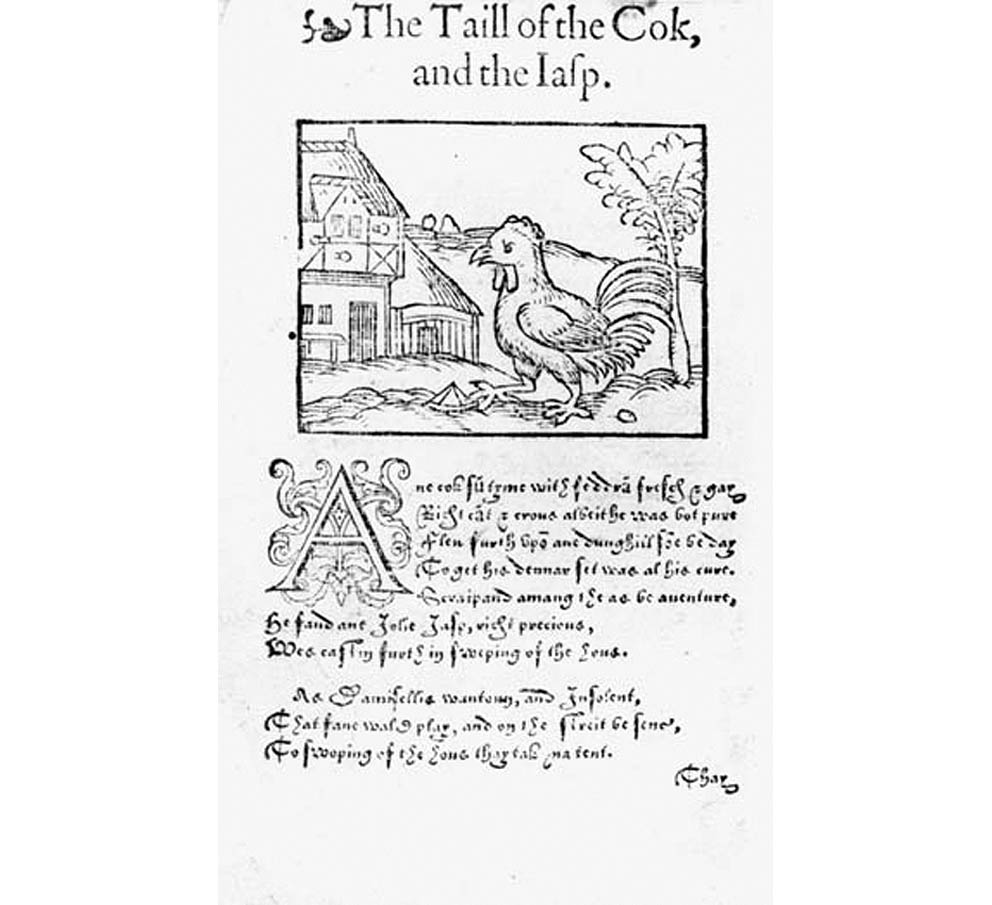 The Taill of the Cok,
and the Iaſp.
Ane cok sū tyme with feddrā freſch & gay
Richt cāt & crous albeit he was bot pure
Flew furth vpō ane dunghill sōe be day
To get his dennar ſet was al his cure.
Scraipand amang the as be auenture,
He fand ane Jolie Jaſp, richt precious,
Wes caſtin furth in ſweping of the hous.
As Damiſellis wantoun, and Inſolent,
That fane wald play, and on the ſtreit be ſene,
To ſwoping of the hous thay tak na tent.
Thay